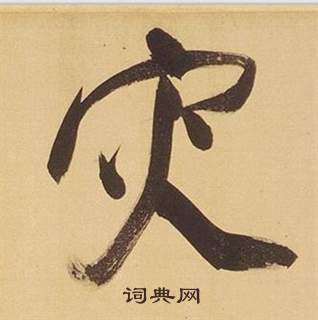 灾
词典网